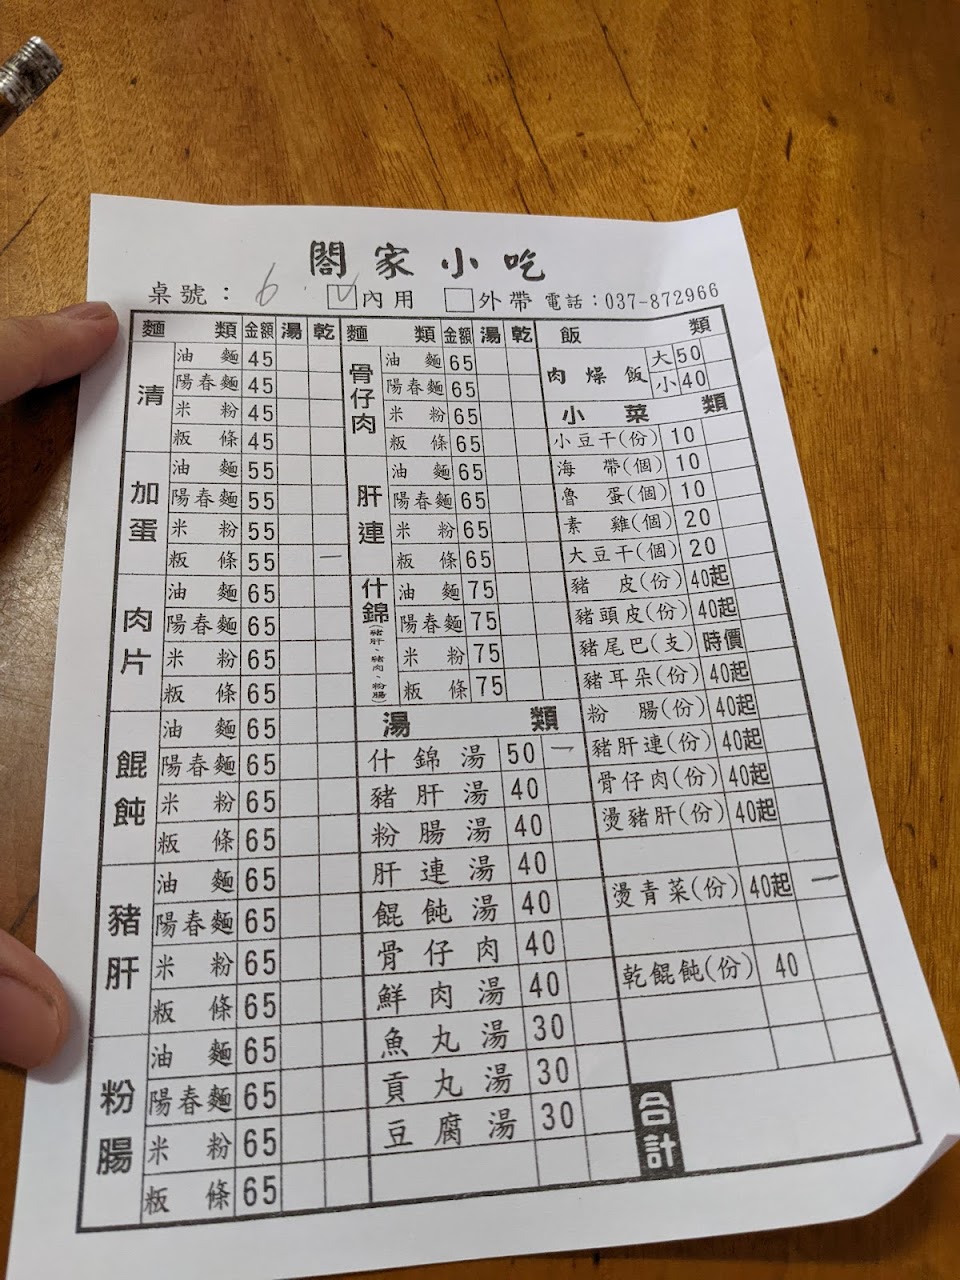 閤家小吃
桌號：6 ☑內用 ☐外帶 電話：037-872966
麵類 金額 湯 乾
清
油麵 45
陽春麵 45
米粉 45
粄條 45
加蛋
油麵 55
陽春麵 55
米粉 55
粄條 55 一
肉片
油麵 65
陽春麵 65
米粉 65
粄條 65
餛飩
油麵 65
陽春麵 65
米粉 65
粄條 65
豬肝
油麵 65
陽春麵 65
米粉 65
粄條 65
粉腸
油麵 65
陽春麵 65
米粉 65
粄條 65
麵類 金額 湯 乾
骨仔肉
油麵 65
陽春麵 65
米粉 65
粄條 65
肝連
油麵 65
陽春麵 65
米粉 65
粄條 65
什錦(豬肝、豬肉、粉腸)
油麵 75
陽春麵 75
米粉 75
粄條 75
湯類
什錦湯 50 一
豬肝湯 40
粉腸湯 40
肝連湯 40
餛飩湯 40
骨仔肉 40
鮮肉湯 40
魚丸湯 30
貢丸湯 30
豆腐湯 30
飯類
肉燥飯 大 50
小 40
小菜類
小豆干(份) 10
海帶(個) 10
魯蛋(個) 10
素雞(個) 20
大豆干(個) 20
豬皮(份) 40起
豬頭皮(份) 40起
豬尾巴(支) 時價
豬耳朵(份) 40起
粉腸(份) 40起
豬肝連(份) 40起
骨仔肉(份) 40起
燙豬肝(份) 40起
燙青菜(份) 40起 一
乾餛飩(份) 40
合計